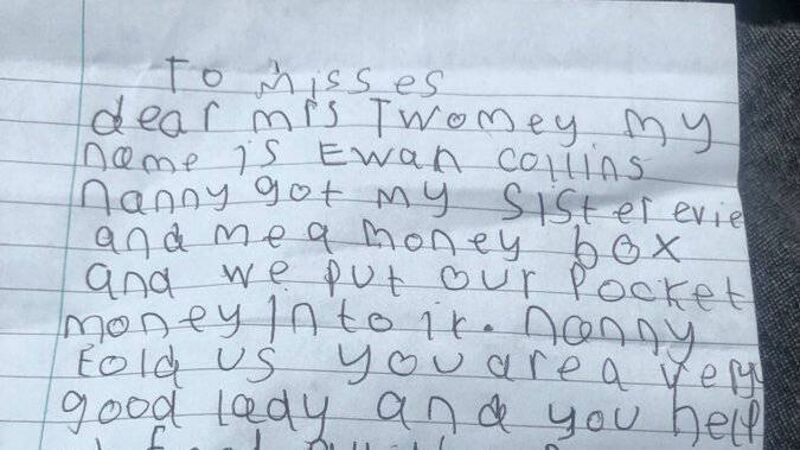 To misses
dear mrs Twomey my
name is Ewan collins
nanny got my sister evie
and me a money box
and we put our pocket
money into it. nanny
told us you are a very
good lady and you help